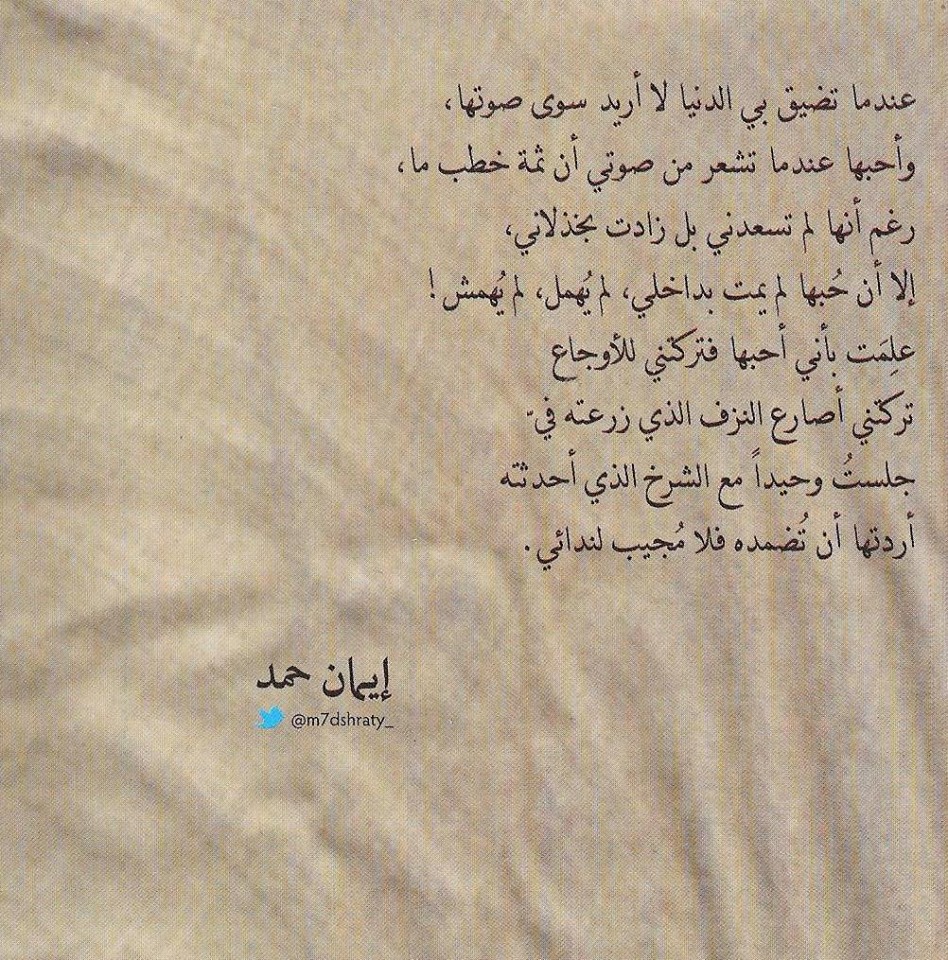 عندما تضيق بي الدنيا لا أريد سوى صوتها،
وأحبها عندما تشعر من صوتي أن ثمة خطب ما،
رغم أنها لم تسعدني بل زادت بخذلاني،
إلا أن حُبها لم يمت بداخلي، لم يُهمل، لم يُهمش!
علِمَت بأني أحبها فتركتني للأوجاع
تركتني أصارع النزف الذي زرعته فيّ
جلستُ وحيداً مع الشرخ الذي أحدثته
أردتها أن تُضمده فلا مُجيب لندائي.
إيمان حمد
@m7dshraty_